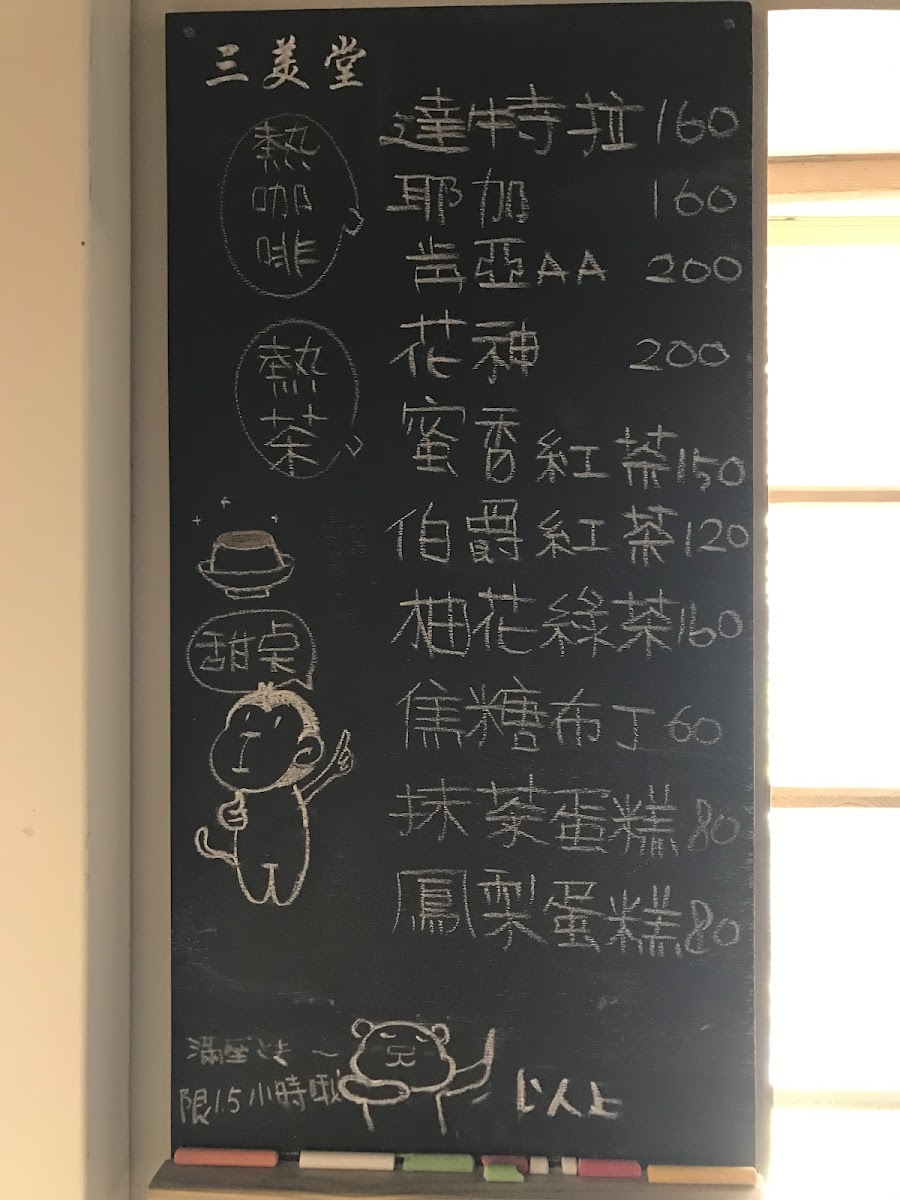 三美堂
熱咖啡
達特拉 160
耶加 160
肯亞AA 200
花神 200
熱茶
蜜香紅茶 150
伯爵紅茶 120
柚花綠茶 160
甜桌
焦糖布丁 60
抹茶蛋糕 80
鳳梨蛋糕 80
滿座とき～
限1.5小時哦
以人上